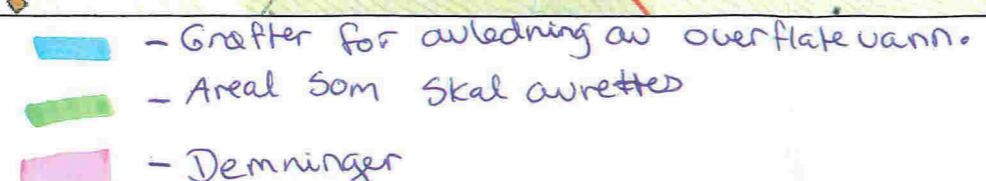 - Grøfter for avledning av overflatevann.
- Areal som skal avrettes
- Demninger